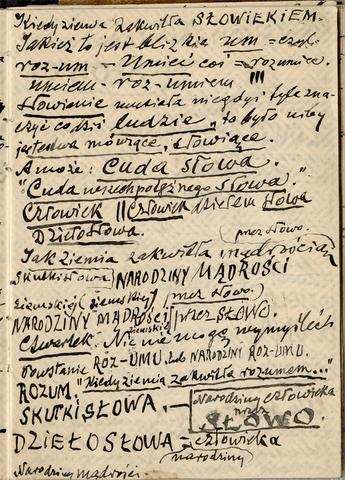 Kiedy ziemia zakwitła SŁOWIEKIEM.
Jakież to jest bliskie um = czyli
roz-um = Umieć coś = rozumieć.
umiem - roz-umiem !!!
Słowienie musiało niegdyś tyle zna-
czyć co dziś ludzie, to było niby
jestestwa mówiące, słowiące.
A może: Cuda słowa.
"Cuda wszechpotężnego słowa."
Człowiek || Człowiek dziełem słowa
DZIEŁOSŁOWA.
(przez słowo.
Jak ziemia zakwitła mądrością)
Skutki słowa NARODZINY MĄDROŚCI
ziemskiej (ziemskiej) (przez słowo.)
NARODZINY MĄDROŚCI przez SŁOWO.
ziemskiej
Czwartek. Nic nie mogę wymyśleć
Powstanie ROZ-UMU. lub NARODZINY ROZ-UMU.
ROZUM. "Kiedy ziemia zakwitła rozumem..."
SKUTKI SŁOWA. — Narodziny człowieka
przez
SŁOWO.
DZIEŁO SŁOWA = człowieka
(narodziny)
Narodziny mądrości